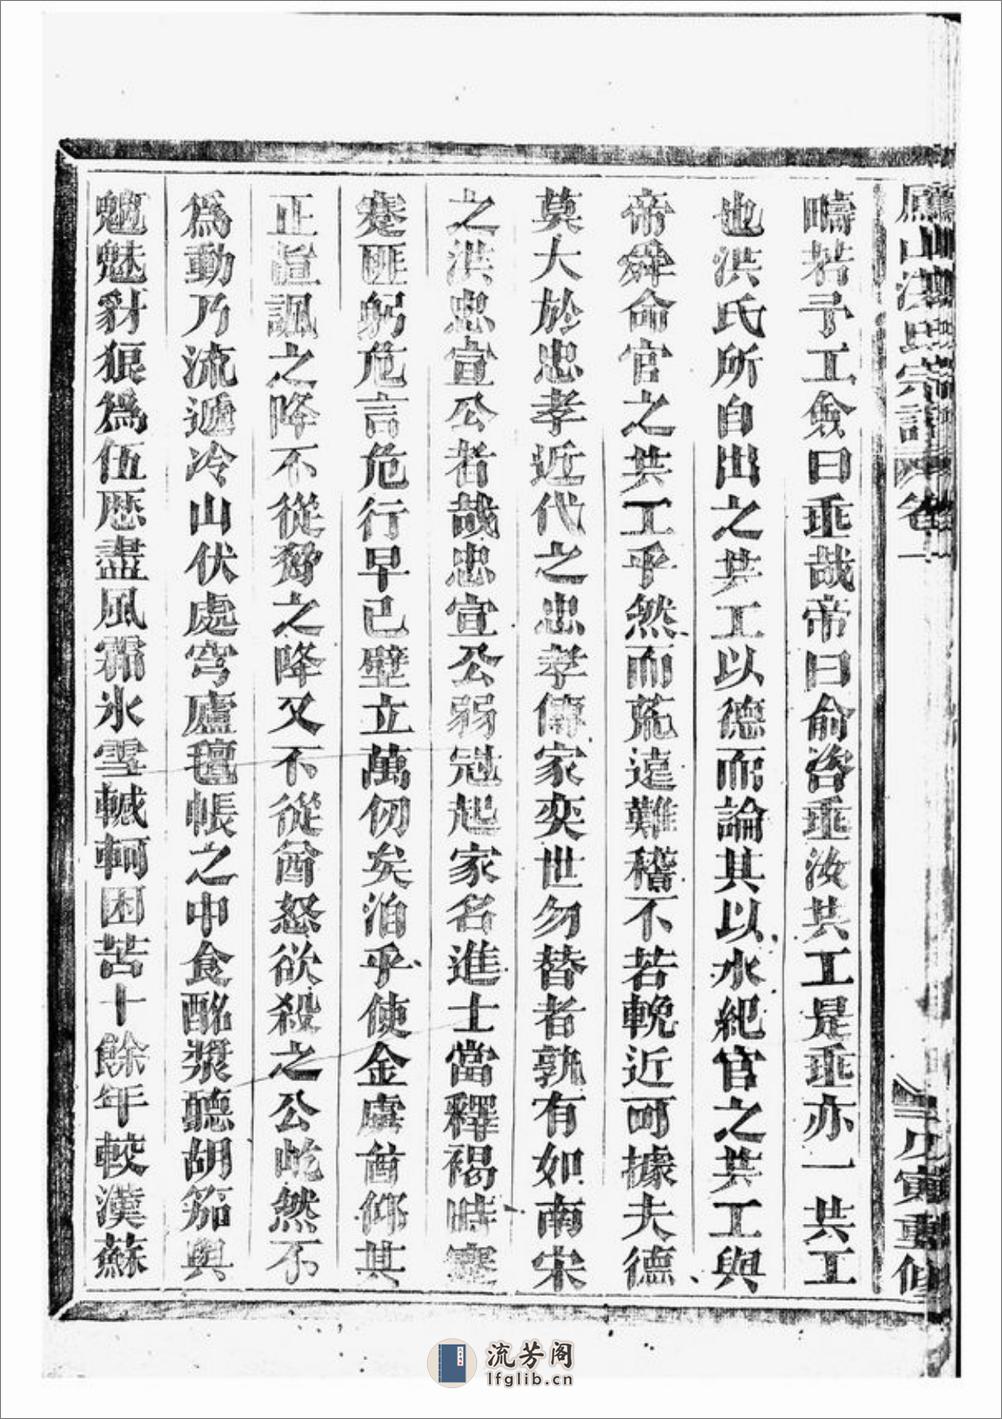 疇若予工僉曰垂哉帝曰俞咨垂汝共工是垂亦一共工
也洪氏所自出之共工以德而論其以水紀官之共工與
帝舜命官之共工乎然而荒遠難稽不若輓近可據夫德
莫大於忠孝近代之忠孝傳家奕世勿替者孰有如南宋
之洪忠宣公者哉忠宣公弱冠起家名進士當釋褐時蹇
蹇匪躬危言危行早已壁立萬仞矣洎乎使金虜酋仰其
正直諷之降不從脅之降又不從酋怒欲殺之公屹然不
為動乃流遞冷山伏處穹廬氊帳之中食酪漿聽胡笳與
魑魅豺狼為伍歷盡風霜氷雪轗軻困苦十餘年較漢蘇
山洪氏宗譜 卷一
戊寅重修
流芳阁
lfglib.cn